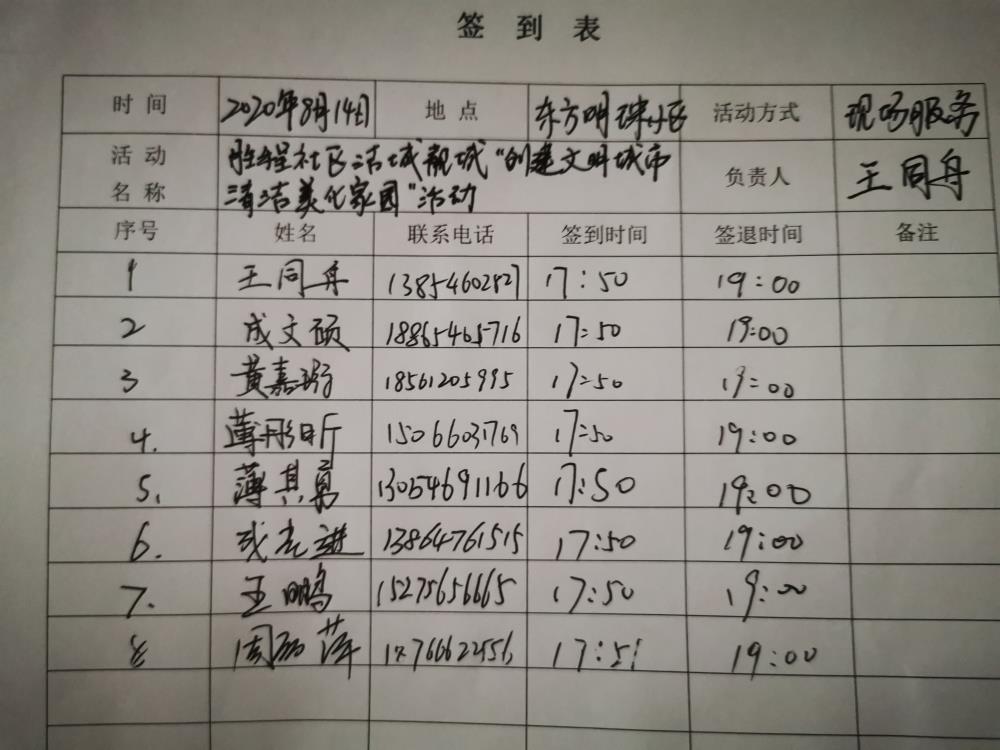 签到表
时间 2020年8月14日 地点 东方明珠小区 活动方式 现场服务
活动名称 胜程社区洁城靓城“创建文明城市 负责人 王同舟
清洁美化家园”活动
序号 姓名 联系电话 签到时间 签退时间 备注
1 王同舟 13854602827 17:50 19:00
2 成文硕 18865465716 17:50 19:00
3 黄嘉 18561205995 17:50 19:00
4. 薄彤昕 15066031769 17:50 19:00
5. 薄其勇 13054691166 17:50 19:00
6. 进 13864761515 17:50 19:00
7. 王鹏 15275656665 17:50 19:00
8 周丽萍 17:51 19:00